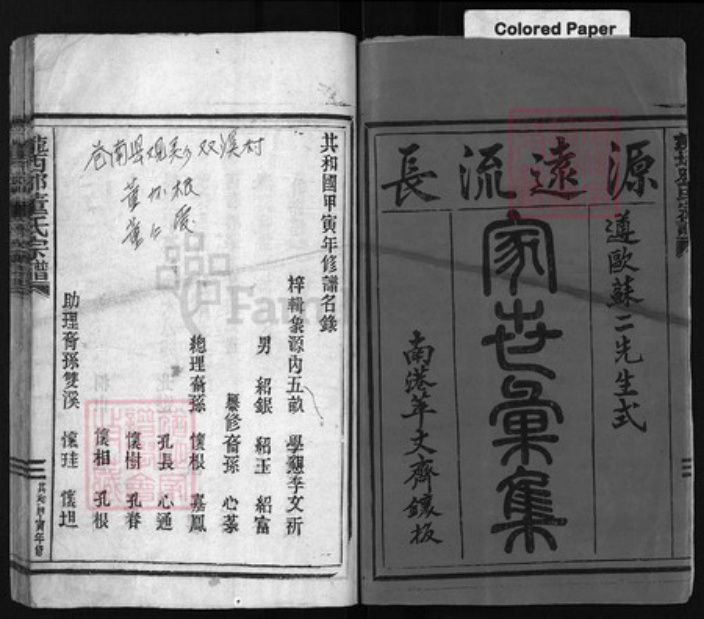 Colored Paper
源遠流長
遵歐蘇二先生式
家世彙集
南港萃文齋鐫板
共和國甲寅年修譜名錄
梓輯象源內五畝 學懇李文祈
男 紹銀 紹玉 紹富
纂修裔孫 心蓁
總理裔孫 懷根 嘉鳳
孔長 心通
懷樹 孔眷
懷相 孔根
助理裔孫雙溪 懷珪 懷坦
苍南县观美乡双溪村
董
董仁
隴西郡董氏宗譜
共和甲寅年修